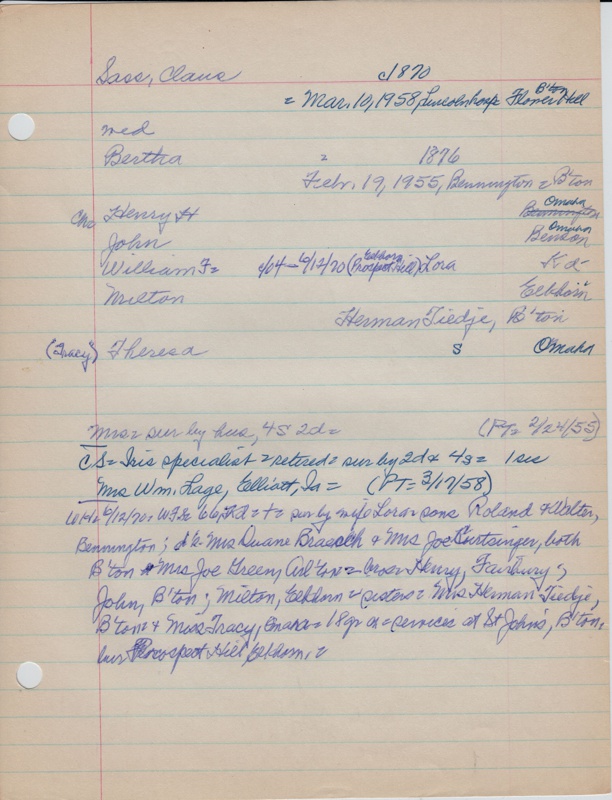 Sass, Claus c1870
= Mar. 10, 1958, Lincolnhosp= Flower Hill B'ton
med
Bertha = 1876
Febr. 19, 1955, Bennington = B'ton
Ch= Henry H Bennington Omaha
John Benson Omaha
William F= c/04 - 6/12/20 (Prospect Hill) Elkhorn Lora Kd
Milton Elkhorn
Herman Tiedje, B'ton
(Tracy) Theresa S Omaha
Mrs= sur by hus, 4S 2d= (PT= 2/24/55)
CS= Iris specialist = retired = sur by 2d + 4s = 1 sis
Mrs Wm. Lage, Elliott, Ia = (PT= 3/17/58)
6/12/20= WFS= 66, Kd = + = sur by wife Lora = sons Roland + Walter,
Bennington; d's= Mrs Duane Braesch + Mrs Joe Curtsinger, both
B'ton + Mrs Joe Green, Arl'ton = bros= Henry, Fairbury;
John, B'ton; Milton, Elkhorn = sisters= Mrs Herman Tiedje,
B'ton= + Miss Tracy, Omaha = 18 gr ch = services at St John's, B'ton=
bur Prospect Hill Elkhorn. =